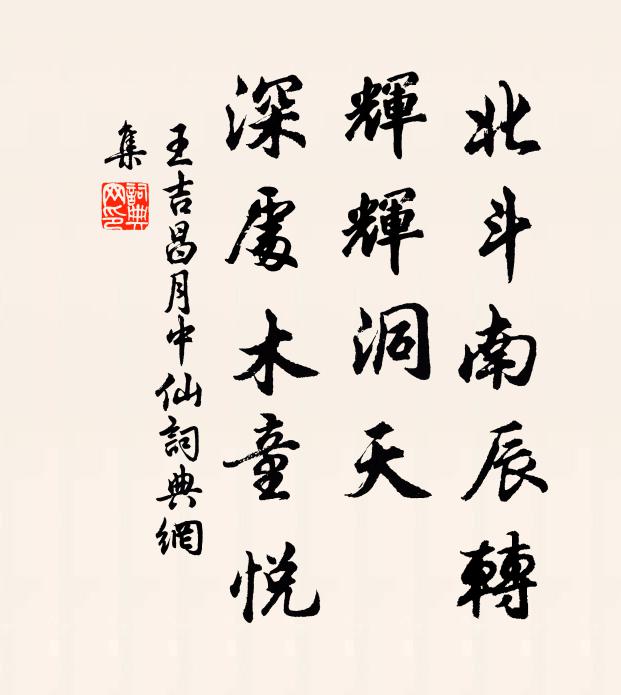 北斗南辰轉
輝輝洞天
深處木童悅
王吉昌月中仙詞典網
集
詞典網印